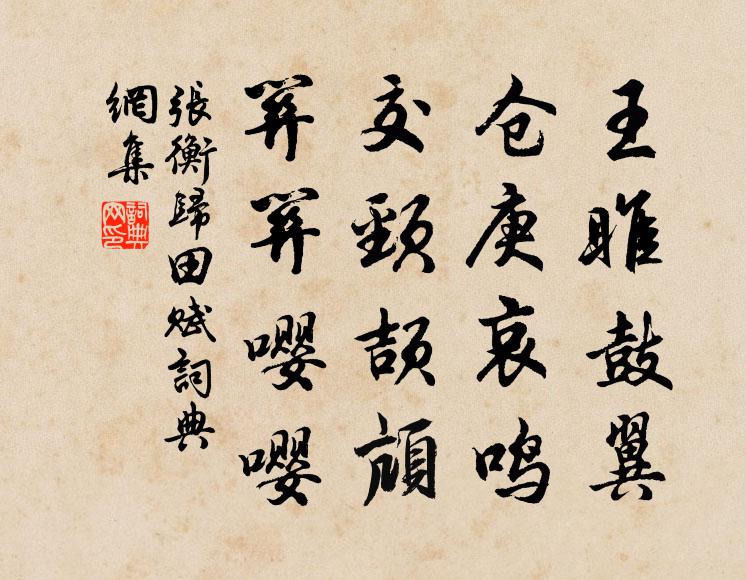 王雎鼓翼
仓庚哀鸣
交頸頡頏
关关嘤嘤
張衡歸田赋詞典
網集
詞典網印